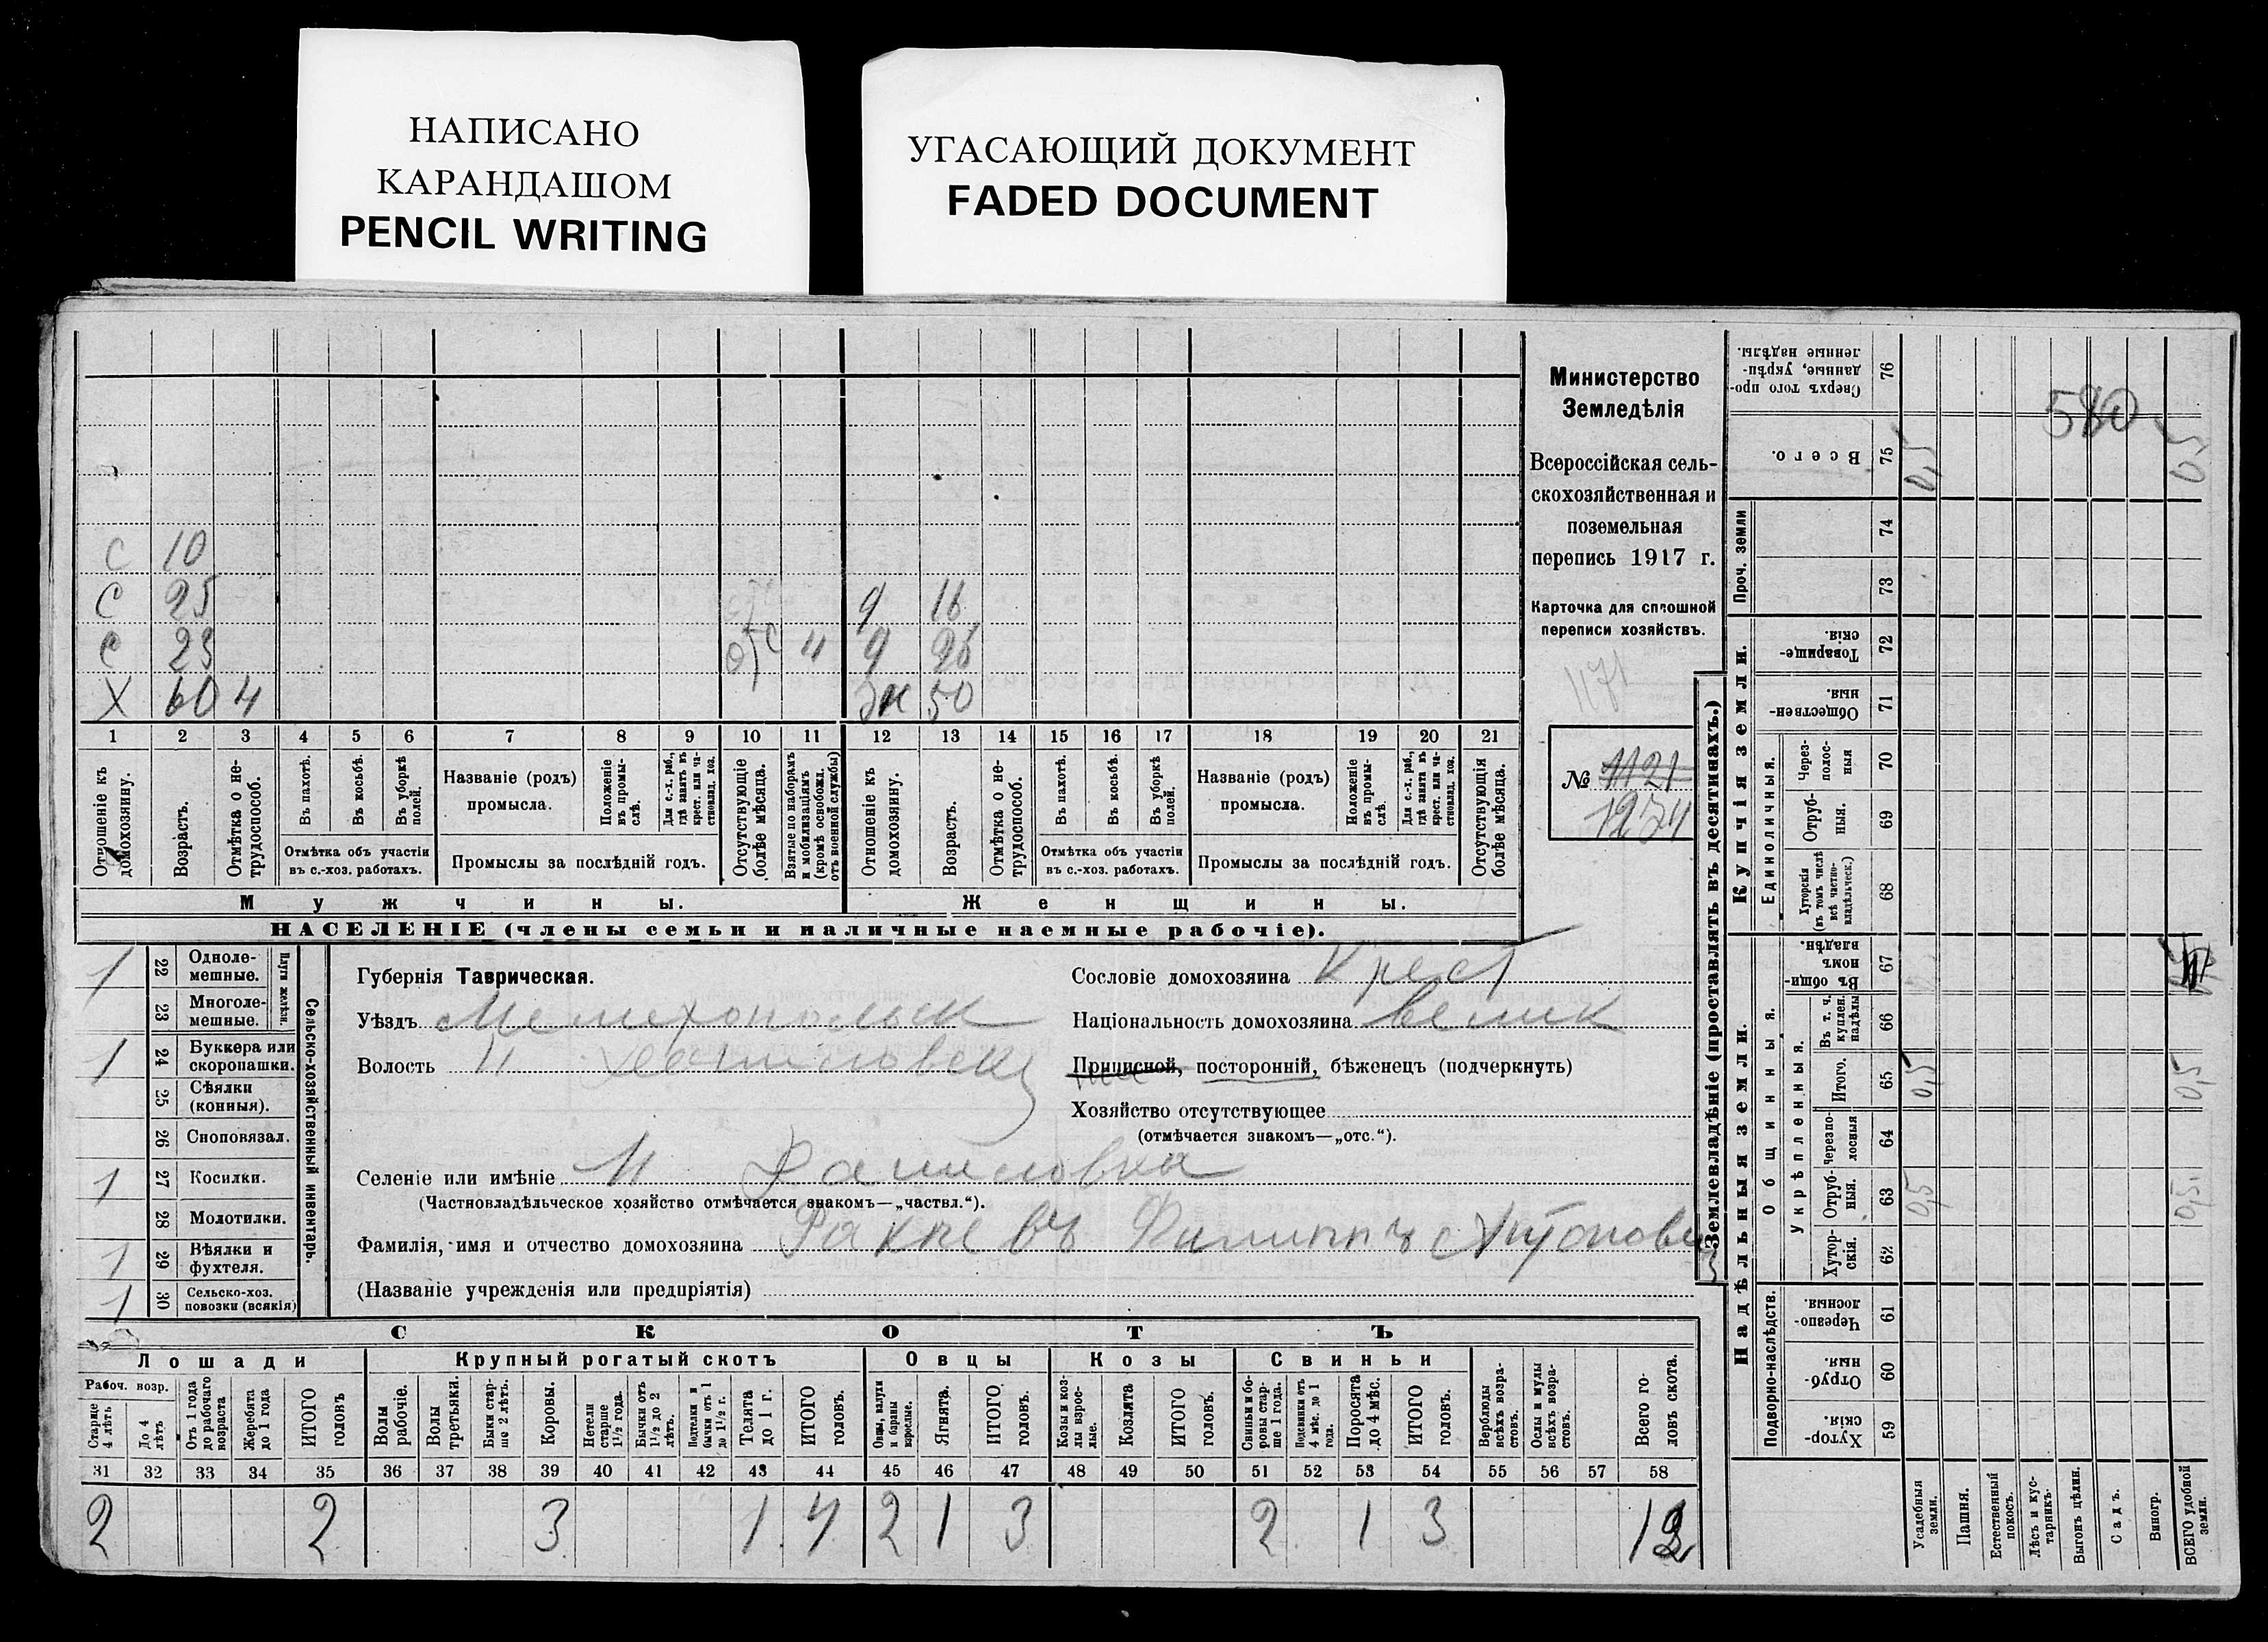 НАПИСАНО
КАРАНДАШОМ
PENCIL WRITING
УГАСАЮЩИЙ ДОКУМЕНТ
FADED DOCUMENT
С 10
С 25
д 16
С 23 отс ч д 26
Х 60 ч Ж 50
1 2 3 4 5 6 7 8 9 10 11 12 13 14 15 16 17 18 19 20 21
Отношеніе къ домохозяину.
Возрастъ.
Отмѣтка о нетрудоспособ.
Въ пахотѣ.
Въ косьбѣ.
Въ уборкѣ полей.
Отмѣтка объ участіи
въ с.-хоз. работахъ.
Названіе (родъ)
промысла.
Положеніе въ промыслѣ.
Для с.-х. раб., гдѣ занятъ въ крест. или частновлад. хоз.
Промыслы за послѣдній годъ.
Отсутствующіе болѣе мѣсяца.
Взятые по наборамъ и мобилизаціямъ (кромѣ освобожд. отъ военной службы)
Отношеніе къ домохозяину.
Возрастъ.
Отмѣтка о нетрудоспособ.
Въ пахотѣ.
Въ косьбѣ.
Въ уборкѣ полей.
Отмѣтка объ участіи
въ с.-хоз. работахъ.
Названіе (родъ)
промысла.
Положеніе въ промыслѣ.
Для с.-х. раб., гдѣ занятъ въ крест. или частновлад. хоз.
Промыслы за послѣдній годъ.
Отсутствующія болѣе мѣсяца.
Мужчины.
Женщины.
НАСЕЛЕНІЕ (члены семьи и наличные наемные рабочіе).
Министерство
Земледѣлія
Всероссійская сель-
скохозяйственная и
поземельная
перепись 1917 г.
Карточка для сплошной
переписи хозяйствъ.
1171
№ 1121
1274
1 22 Одноле-
мешные.
23 Многоле-
мешные.
Плуги желѣзн.
1 24 Буккера или
скоропашки.
25 Сѣялки
(конныя).
26 Сноповязал.
1 27 Косилки.
28 Молотилки.
1 29 Вѣялки и
фухтеля.
1 30 Сельско-хоз.
повозки (всякія)
Сельско-хозяйственный инвентарь.
Губернія Таврическая.
Уѣздъ Мелитопольск
Волость
Селеніе или имѣніе
(Частновладѣльческое хозяйство отмѣчается знакомъ—„частвл.“).
Фамилія, имя и отчество домохозяина Филиппъ Антонович
(Названіе учрежденія или предпріятія)
Сословіе домохозяина Крест
Національность домохозяина велик
Приписной, посторонній, бѣженецъ (подчеркнуть)
Хозяйство отсутствующее
(отмѣчается знакомъ—„отс.“).
СКОТЪ
Лошади
Крупный рогатый скотъ
Овцы
Козы
Свиньи
Рабоч. возр.
Старше 4 лѣтъ
До 4 лѣтъ
Отъ 1 года до рабочаго возраста
Жеребята до 1 года
ИТОГО головъ
Волы рабочіе.
Волы третьяки.
Быки старше 2 лѣтъ.
Коровы.
Нетели старше 1½ года.
Бычки отъ 1½ до 2 лѣтъ.
Подтелки и бычки отъ 1 до 1½ г.
Телята до 1 г.
ИТОГО головъ.
Овцы, валухи и бараны взрослые.
Ягнята.
ИТОГО головъ.
Козы и козлы взрослые.
Козлята
ИТОГО головъ.
Свиньи и боровы старше 1 года.
Подсвинки отъ 4 мѣс. до 1 года.
Поросята до 4 мѣс.
ИТОГО головъ.
Верблюды всѣхъ возрастовъ.
Ослы и мулы всѣхъ возрастовъ.
Всего головъ скота.
31 32 33 34 35 36 37 38 39 40 41 42 43 44 45 46 47 48 49 50 51 52 53 54 55 56 57 58
2 2 3 1 4 2 1 3 2 1 3 12
Землевладѣніе (проставлять въ десятинахъ.)
Купчія земли.
Надѣльныя земли.
Проч. земли
Единоличныя.
Общинныя.
Укрѣпленныя.
Подворно-наслѣдств.
Сверхъ того проданные, укрѣпленные надѣлы. 76
Всего. 75
74
73
Товарищескія. 72
Общественныя. 71
Черезполосныя 70
Отрубныя. 69
Хуторскія (въ томъ числѣ всѣ частновладѣльческ.) 68
Въ общинномъ владѣн. 67
Въ т. ч. куплен. надѣлы 66
Итого. 65
Черезполосныя 64
Отрубныя. 63
Хуторскія. 62
Черезполосныя. 61
Отрубныя. 60
Хуторскія. 59
580
0,5 0,5
0,5 0,5
0,5 0,5
Усадебныя земли.
Пашня.
Естественный покосъ.
Лѣсъ и кустарникъ.
Выгонъ цѣлин.
Садъ.
Виногр.
ВСЕГО удобной земли.